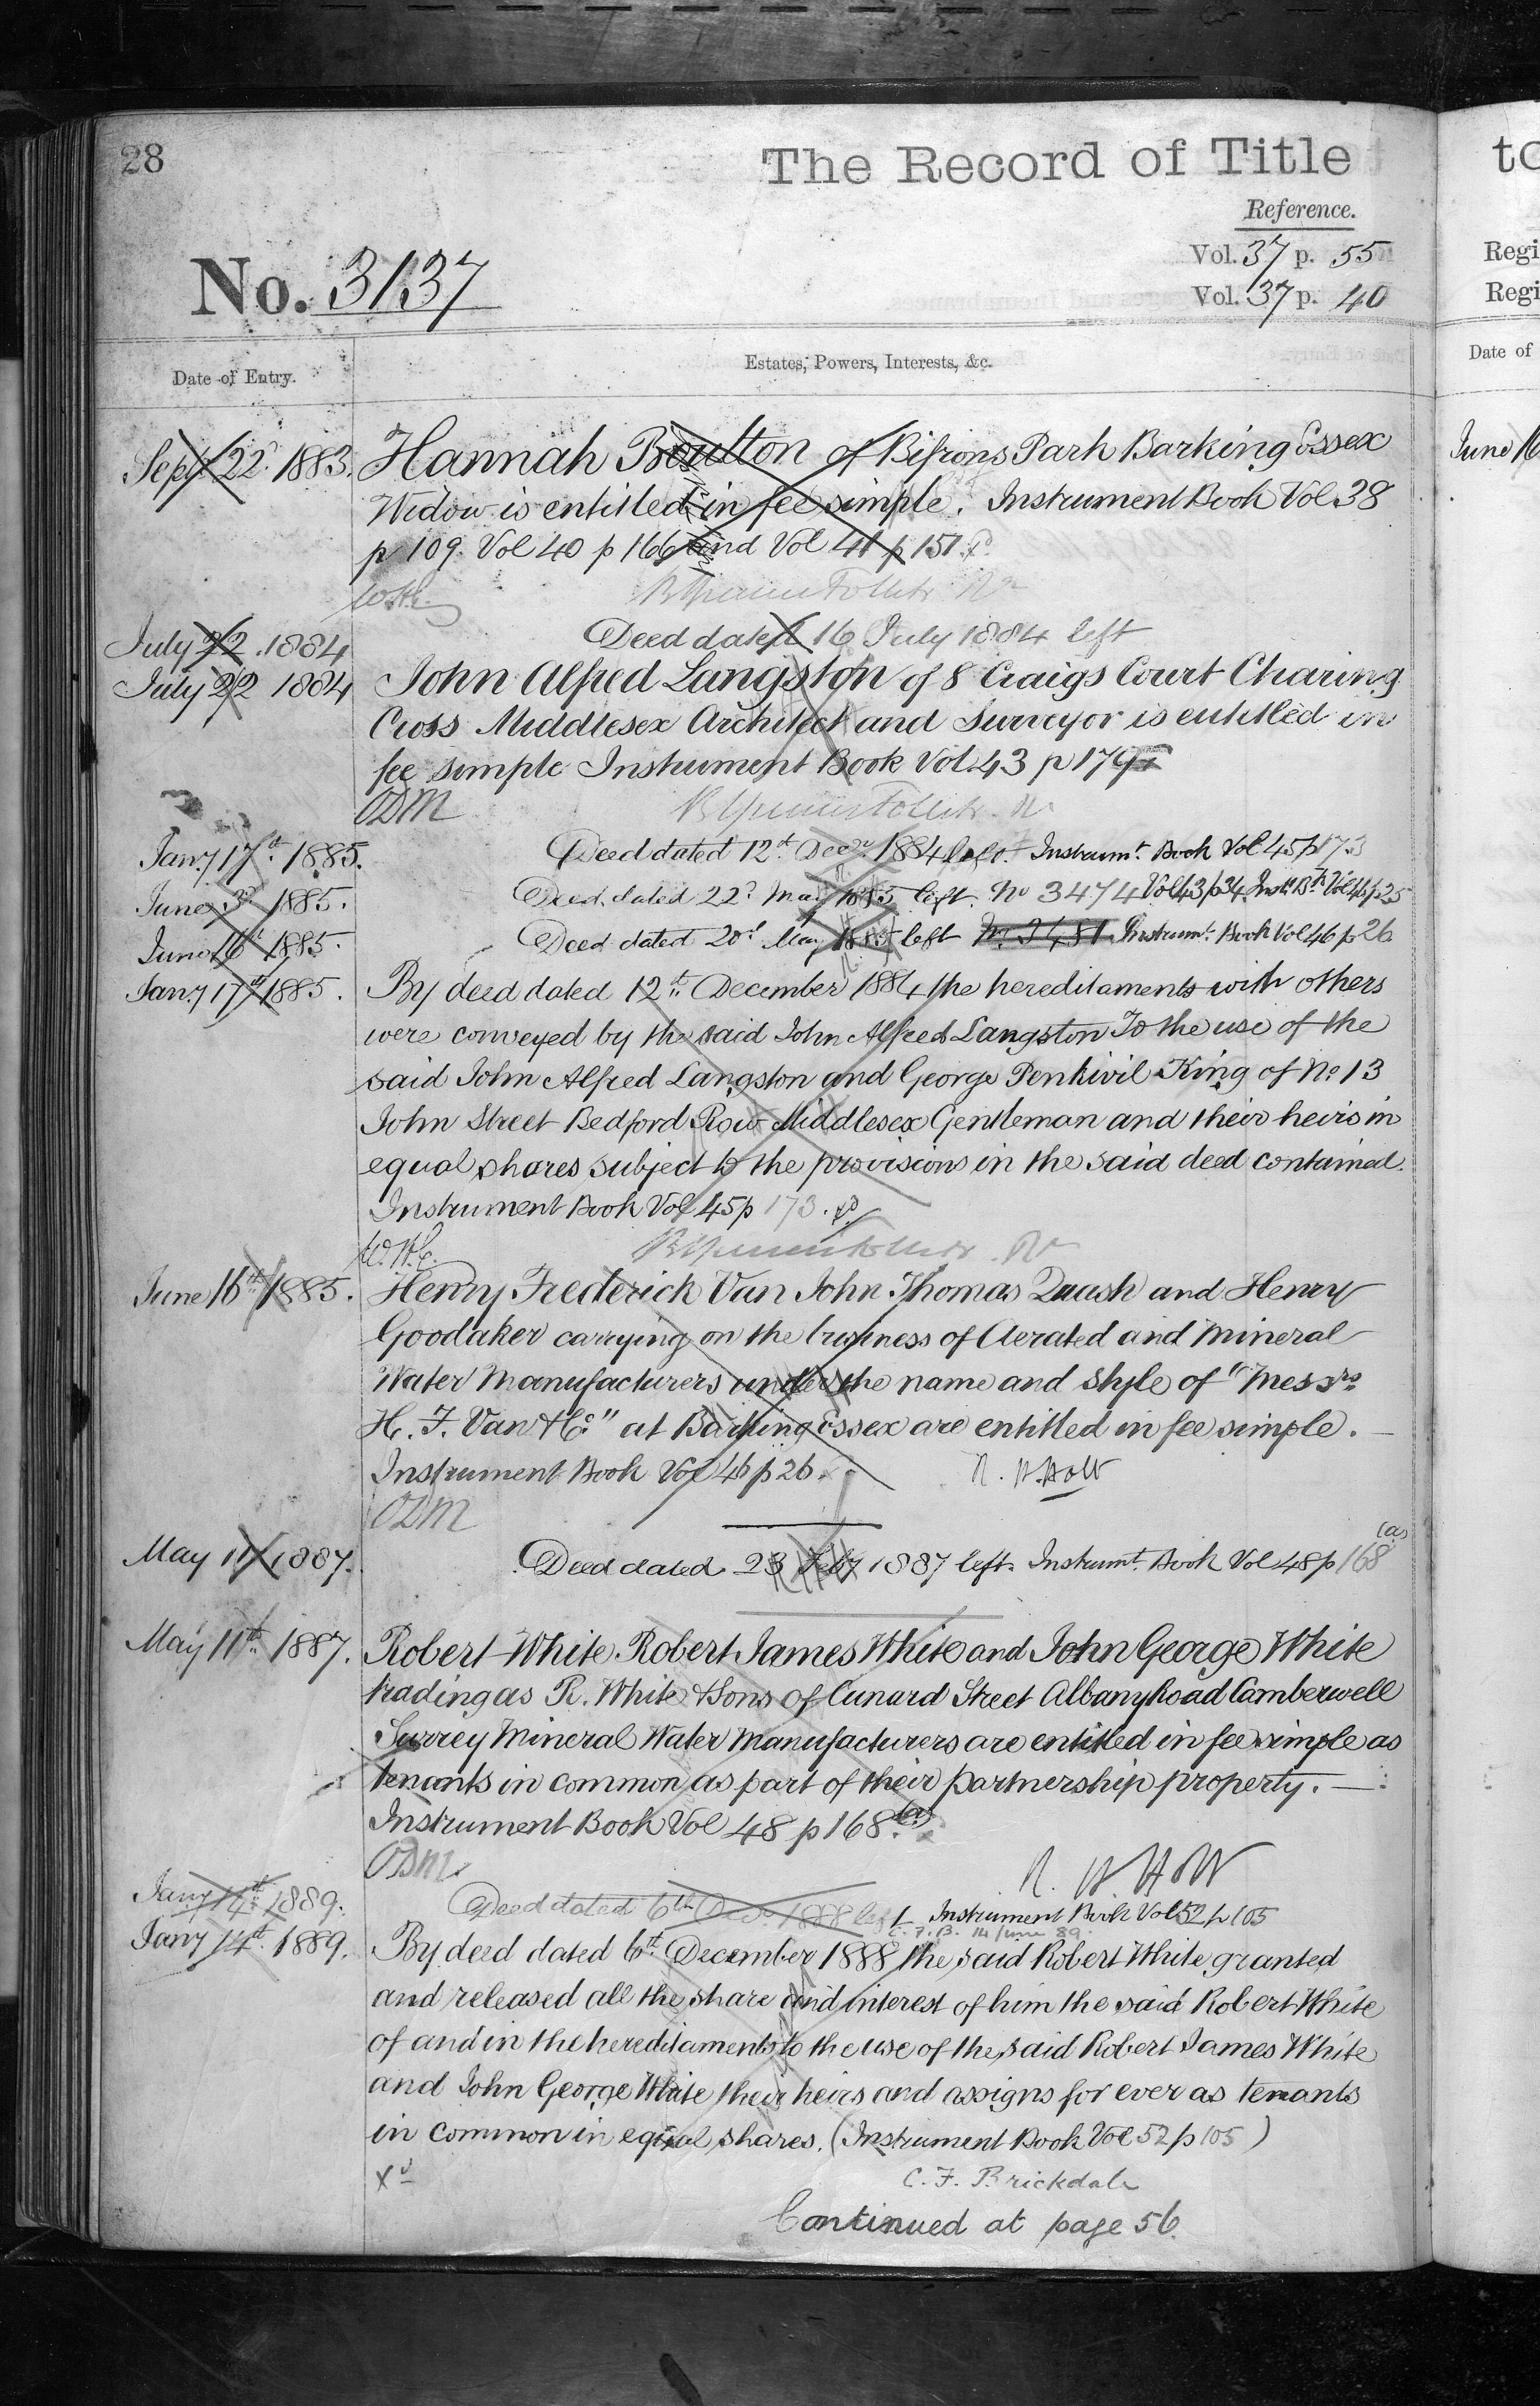 28
The Record of Title
Reference.
Vol. 37 p. 55
No. 3137
Vol. 37 p. 40
Date of Entry.
Estates, Powers, Interests, &c.
Sept 22d. 1883. Hannah Boulton of Bifrons Park Barking Essex
Widow is entitled in fee simple. Instrument Book Vol 38
p 109. Vol 40 p 166 and Vol 41 p 151.
W.H.C.
July 22. 1884 Deed dated 16 July 1884 left
July 22 1884 John Alfred Langston of 8 Craigs Court Charing
Cross Middlesex Architect and Surveyor is entitled in
fee simple Instrument Book Vol. 43 p 179
ODM
Jany. 17th. 1885. Deed dated 12th. Decr. 1884 left. Instrumt. Book Vol 45 p 173
June 3d. 1885. Deed dated 22d. May 1885 left. No 3474 Vol 43 p 34. Instt. Bk. Vol 46 p 25
June 16th 1885. Deed dated 20th May 1885 left Instrumt. Book Vol 46 p 26
Jany 17th 1885. By deed dated 12th. December 1884 the hereditaments with others
were conveyed by the said John Alfred Langston To the use of the
said John Alfred Langston and George Penkivil King of No. 13
John Street Bedford Row Middlesex Gentleman and their heirs in
equal shares subject to the provisions in the said deed contained.
Instrument Book Vol 45 p 173.
W.H.C.
June 16th 1885. Henry Frederick Van John Thomas Quash and Henry
Goodaker carrying on the business of Aerated and Mineral
Water Manufacturers under the name and style of "Messrs.
H. F. Van & Co." at Barking Essex are entitled in fee simple. —
Instrument Book Vol 46 p 26. R. H. Holt
ODM
May 11th 1887. Deed dated 23 Feby 1887 left. Instrumt. Book Vol 48 p 168(a)
May 11th. 1887. Robert White. Robert James White and John George White
trading as R. White & Sons of Cunard Street Albany Road Camberwell
Surrey Mineral Water Manufacturers are entitled in fee simple as
tenants in common as part of their partnership property. —
Instrument Book Vol 48 p 168.(a)
ODM. R. H Holt
Jany 14th. 1889. Deed dated 6th Decr. 1888 left Instrument Book Vol 52 p 105
C. F. B. 14 June 89
Jany 14th. 1889. By deed dated 6th. December 1888 the said Robert White granted
and released all the share and interest of him the said Robert White
of and in the hereditaments to the use of the said Robert James White
and John George White their heirs and assigns for ever as tenants
in common in equal shares. (Instrument Book Vol 52 p 105)
Xd
C. F. Brickdale
Continued at page 56.
to
Regi
Regi
Date of
June 16